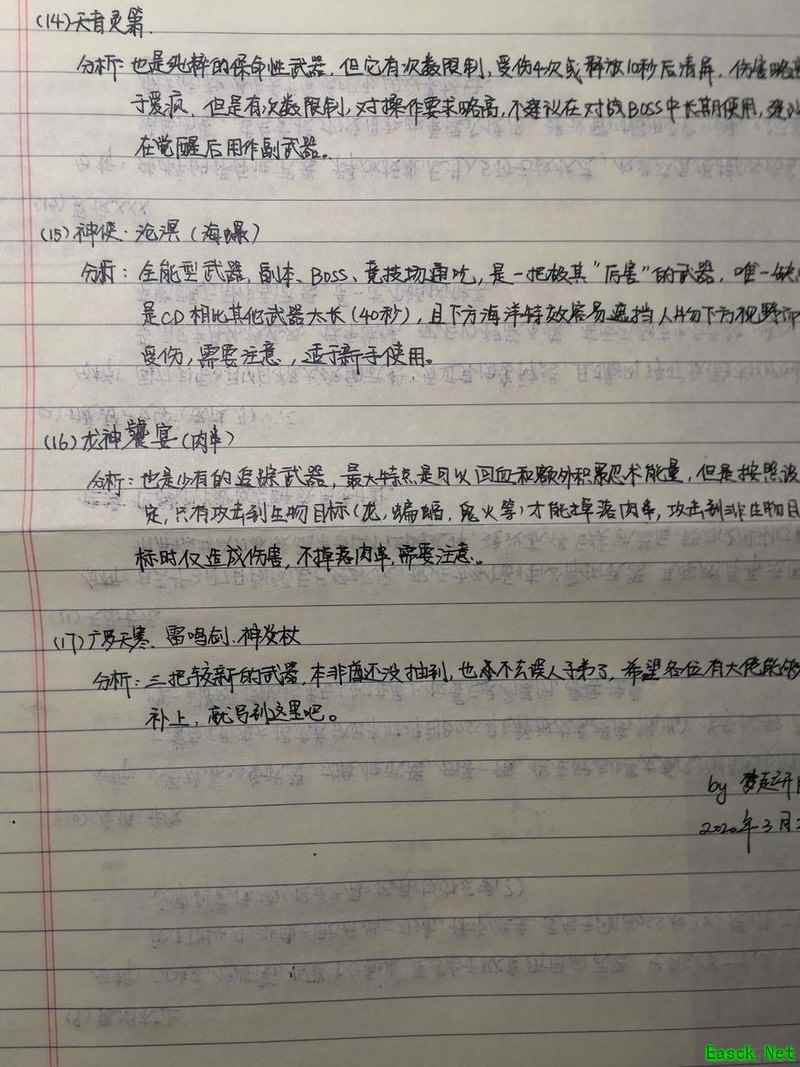 (14)天音灵箫.
分析:也是纯粹的保命性武器,但它有次数限制,受伤4次或释放10秒后清屏,伤害略
于爱疯,但是有次数限制,对操作要求略高,不建议在对战BOSS中长期使用,建议
在觉醒后用作副武器。
(15)神使·沧溟(海螺)
分析:全能型武器,副本、BOSS、竞技场通吃,是一把极其“厉害”的武器,唯一缺
是CD相比其他武器太长(40秒),且下方海洋特效容易遮挡人物下方视野
受伤,需要注意,适于新手使用。
(16)龙神饕宴(肉串)
分析:也是少有的追踪武器,最大特点是可以回血和额外积累忍术能量,但是按照设
定,只有攻击到生物目标(龙,蝙蝠,鬼火等)才能掉落肉串,攻击到非生物目
标时仅造成伤害,不掉落肉串,需要注意。
(17)广罗天寒、雷鸣剑、神发杖
分析:三把较新的武器,本非酋还没抽到,也就不去误人子弟了,希望各位有大佬能够
补上,就写到这里吧。
by 梦
2020年3月
Easck.Net